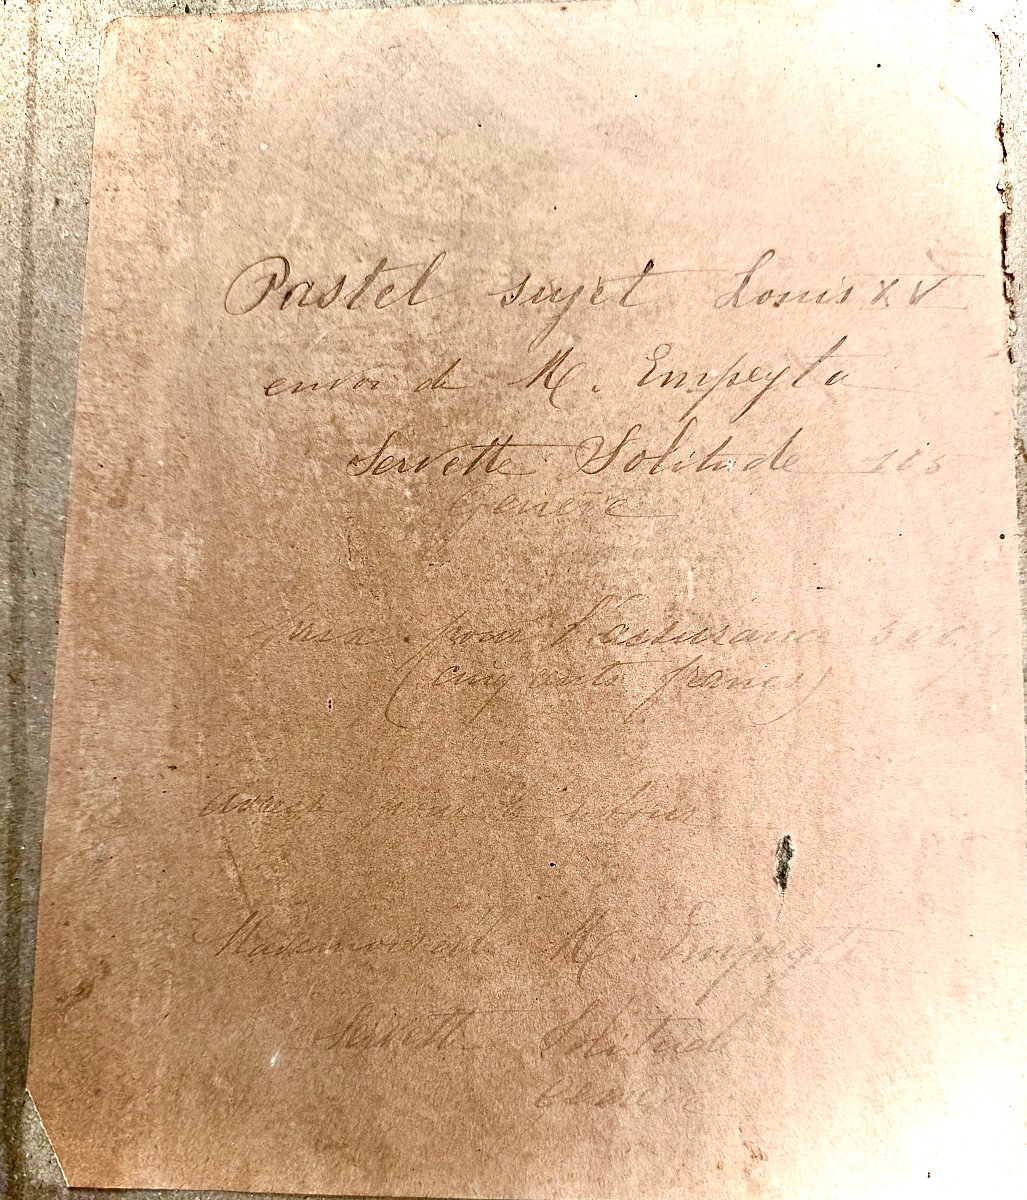 Pastel sujet Louis XV
envoi de M. Empeyta
Servette Solitude 105
Genève
prix pour l'assurance 500
(cinq cents francs)
adresse pour le retour
Mademoiselle M. Empeyta
Servette Solitude
Genève